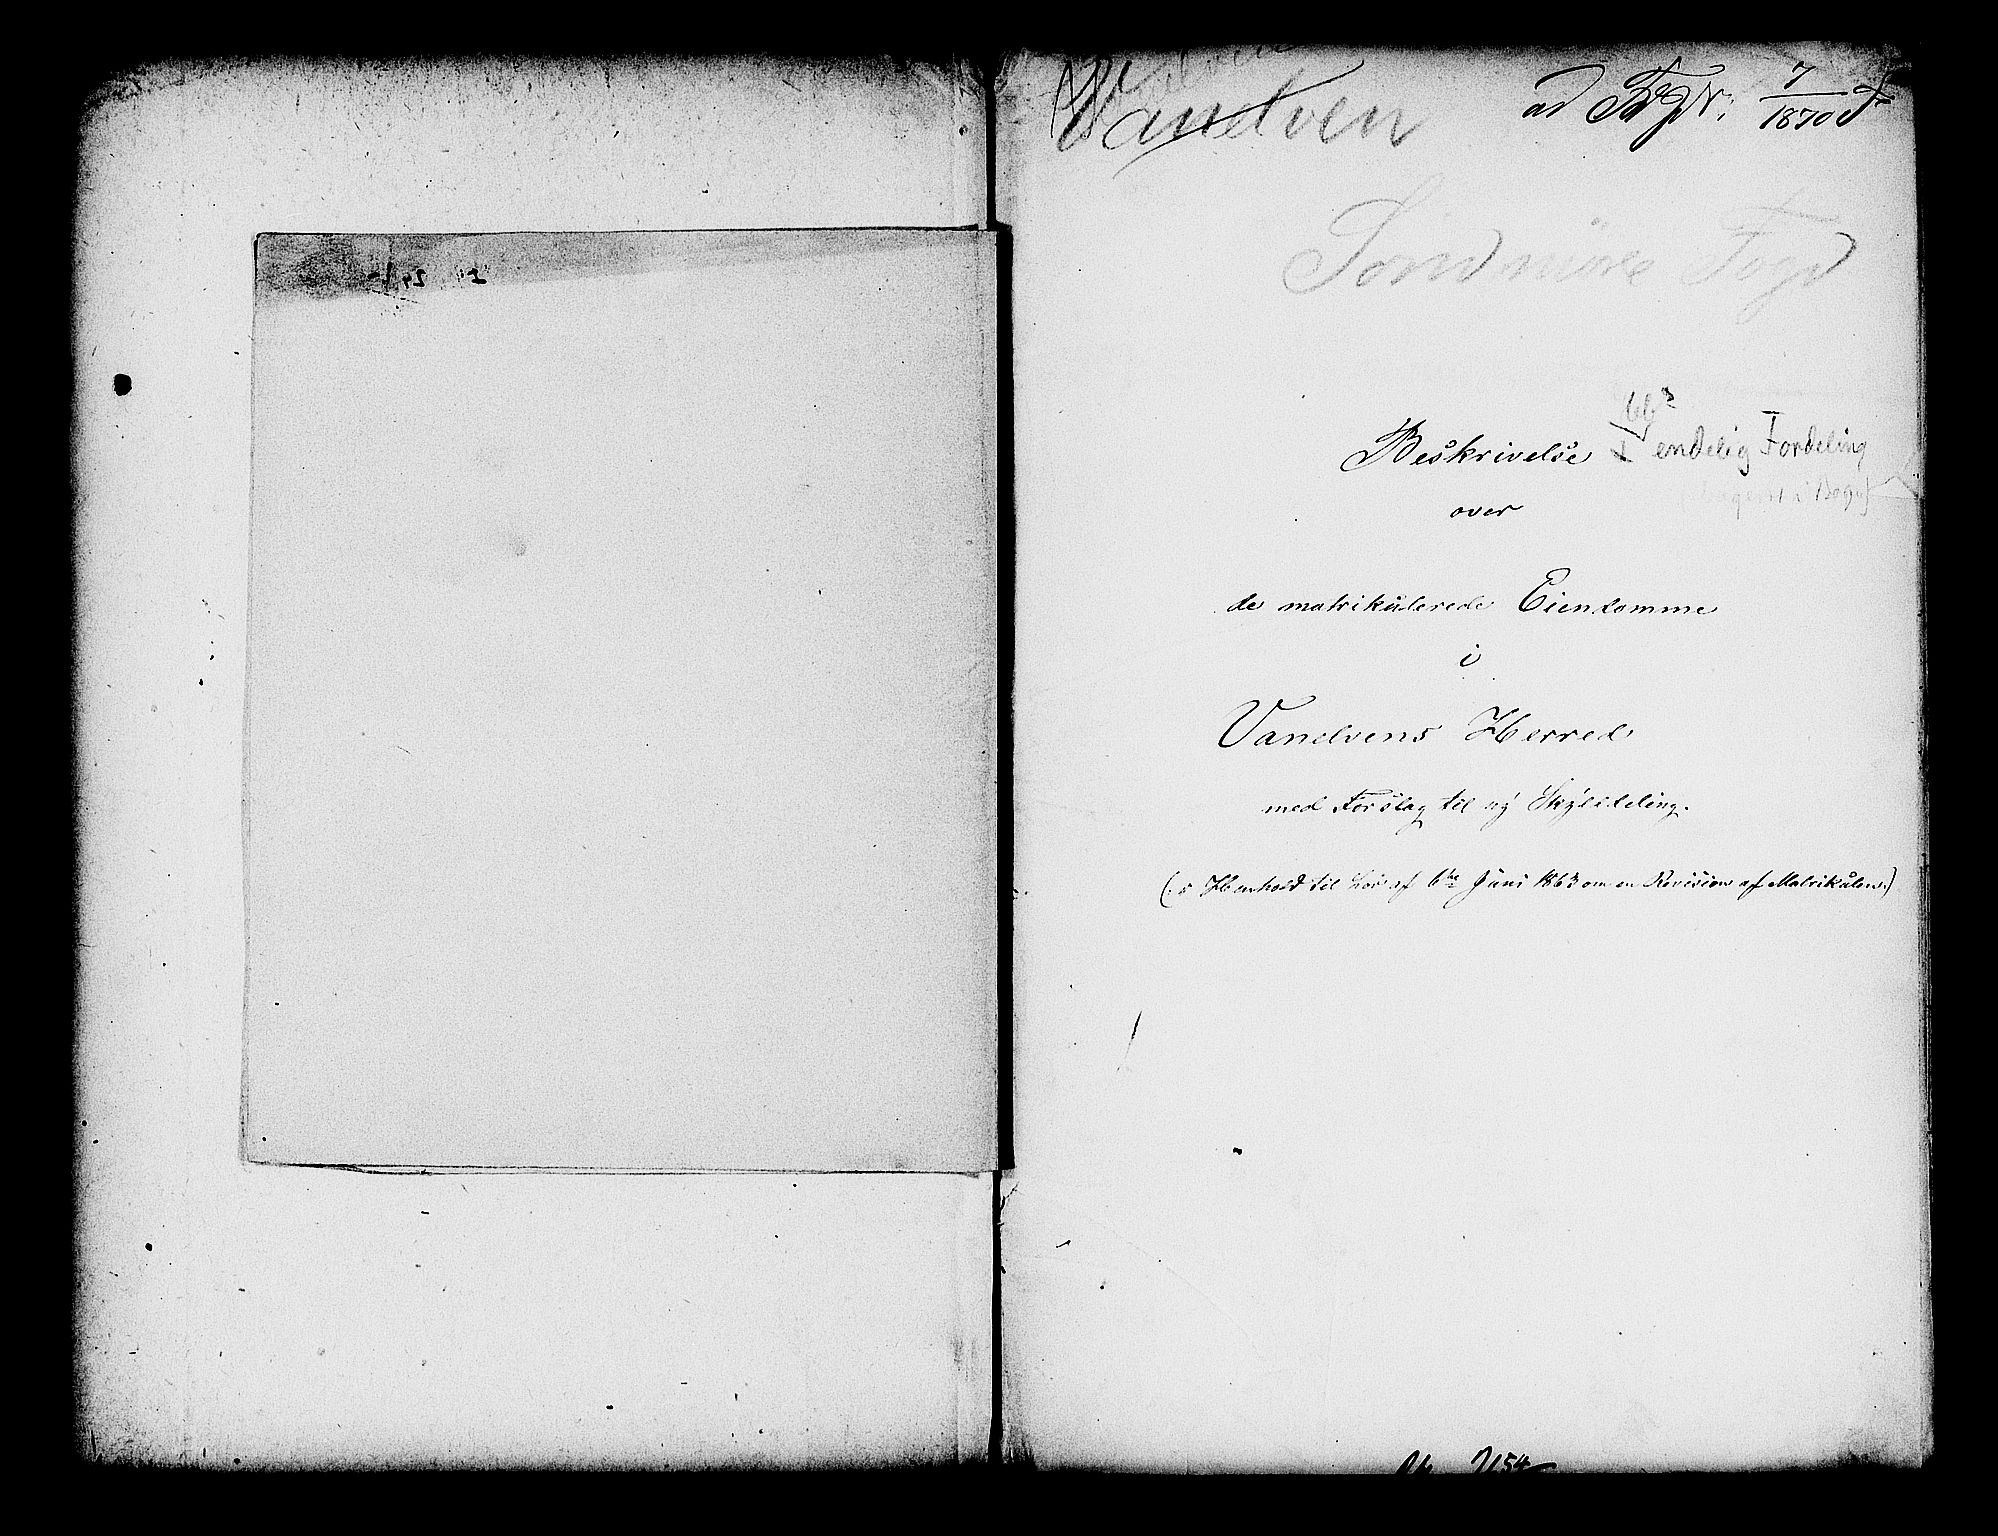 Vandven
ad 7/1870
Söndmöre Fogd
Beskrivelse endelig Fordeling
over
de matrikulerede Eiendomme
i
Vanelvens Herred
med Forslag til ny Skylddeling.
(i Henhold til Lov af 6te Juni 1863 om en Revision af Matrikulen.)